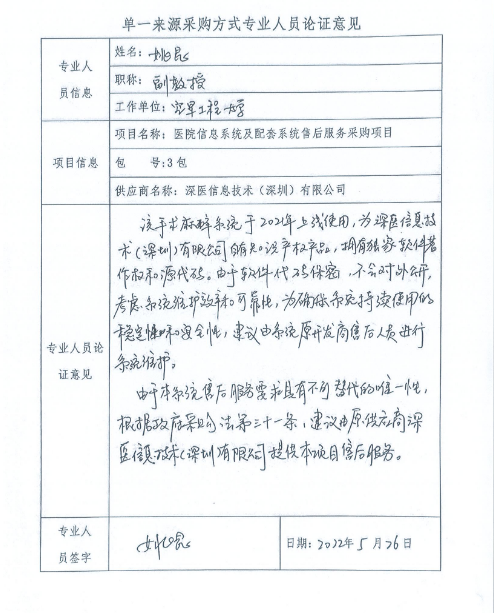 单一来源采购方式专业人员论证意见
专业人员信息
姓名：姚昆
职称：副教授
工作单位：空军工程大学
项目信息
项目名称：医院信息系统及配套系统售后服务采购项目
包 号:3包
供应商名称：深医信息技术（深圳）有限公司
专业人员论证意见
该手术麻醉系统于2021年上线使用，为深医信息技
术(深圳)有限公司的知识产权产品，拥有独家软件著
作权和源代码。由于软件代码保密，不会对外公开，
考虑系统维护效率和可靠性，为确保系统持续使用的
稳定性和安全性，建议由系统原开发商售后人员进行
系统维护。
由于本系统售后服务需求具有不可替代的唯一性，
根据政府采购法第三十一条，建议由原供应商深
医信息技术(深圳)有限公司提供本项目售后服务。
专业人员签字
姚昆
日期：2022年5月26日